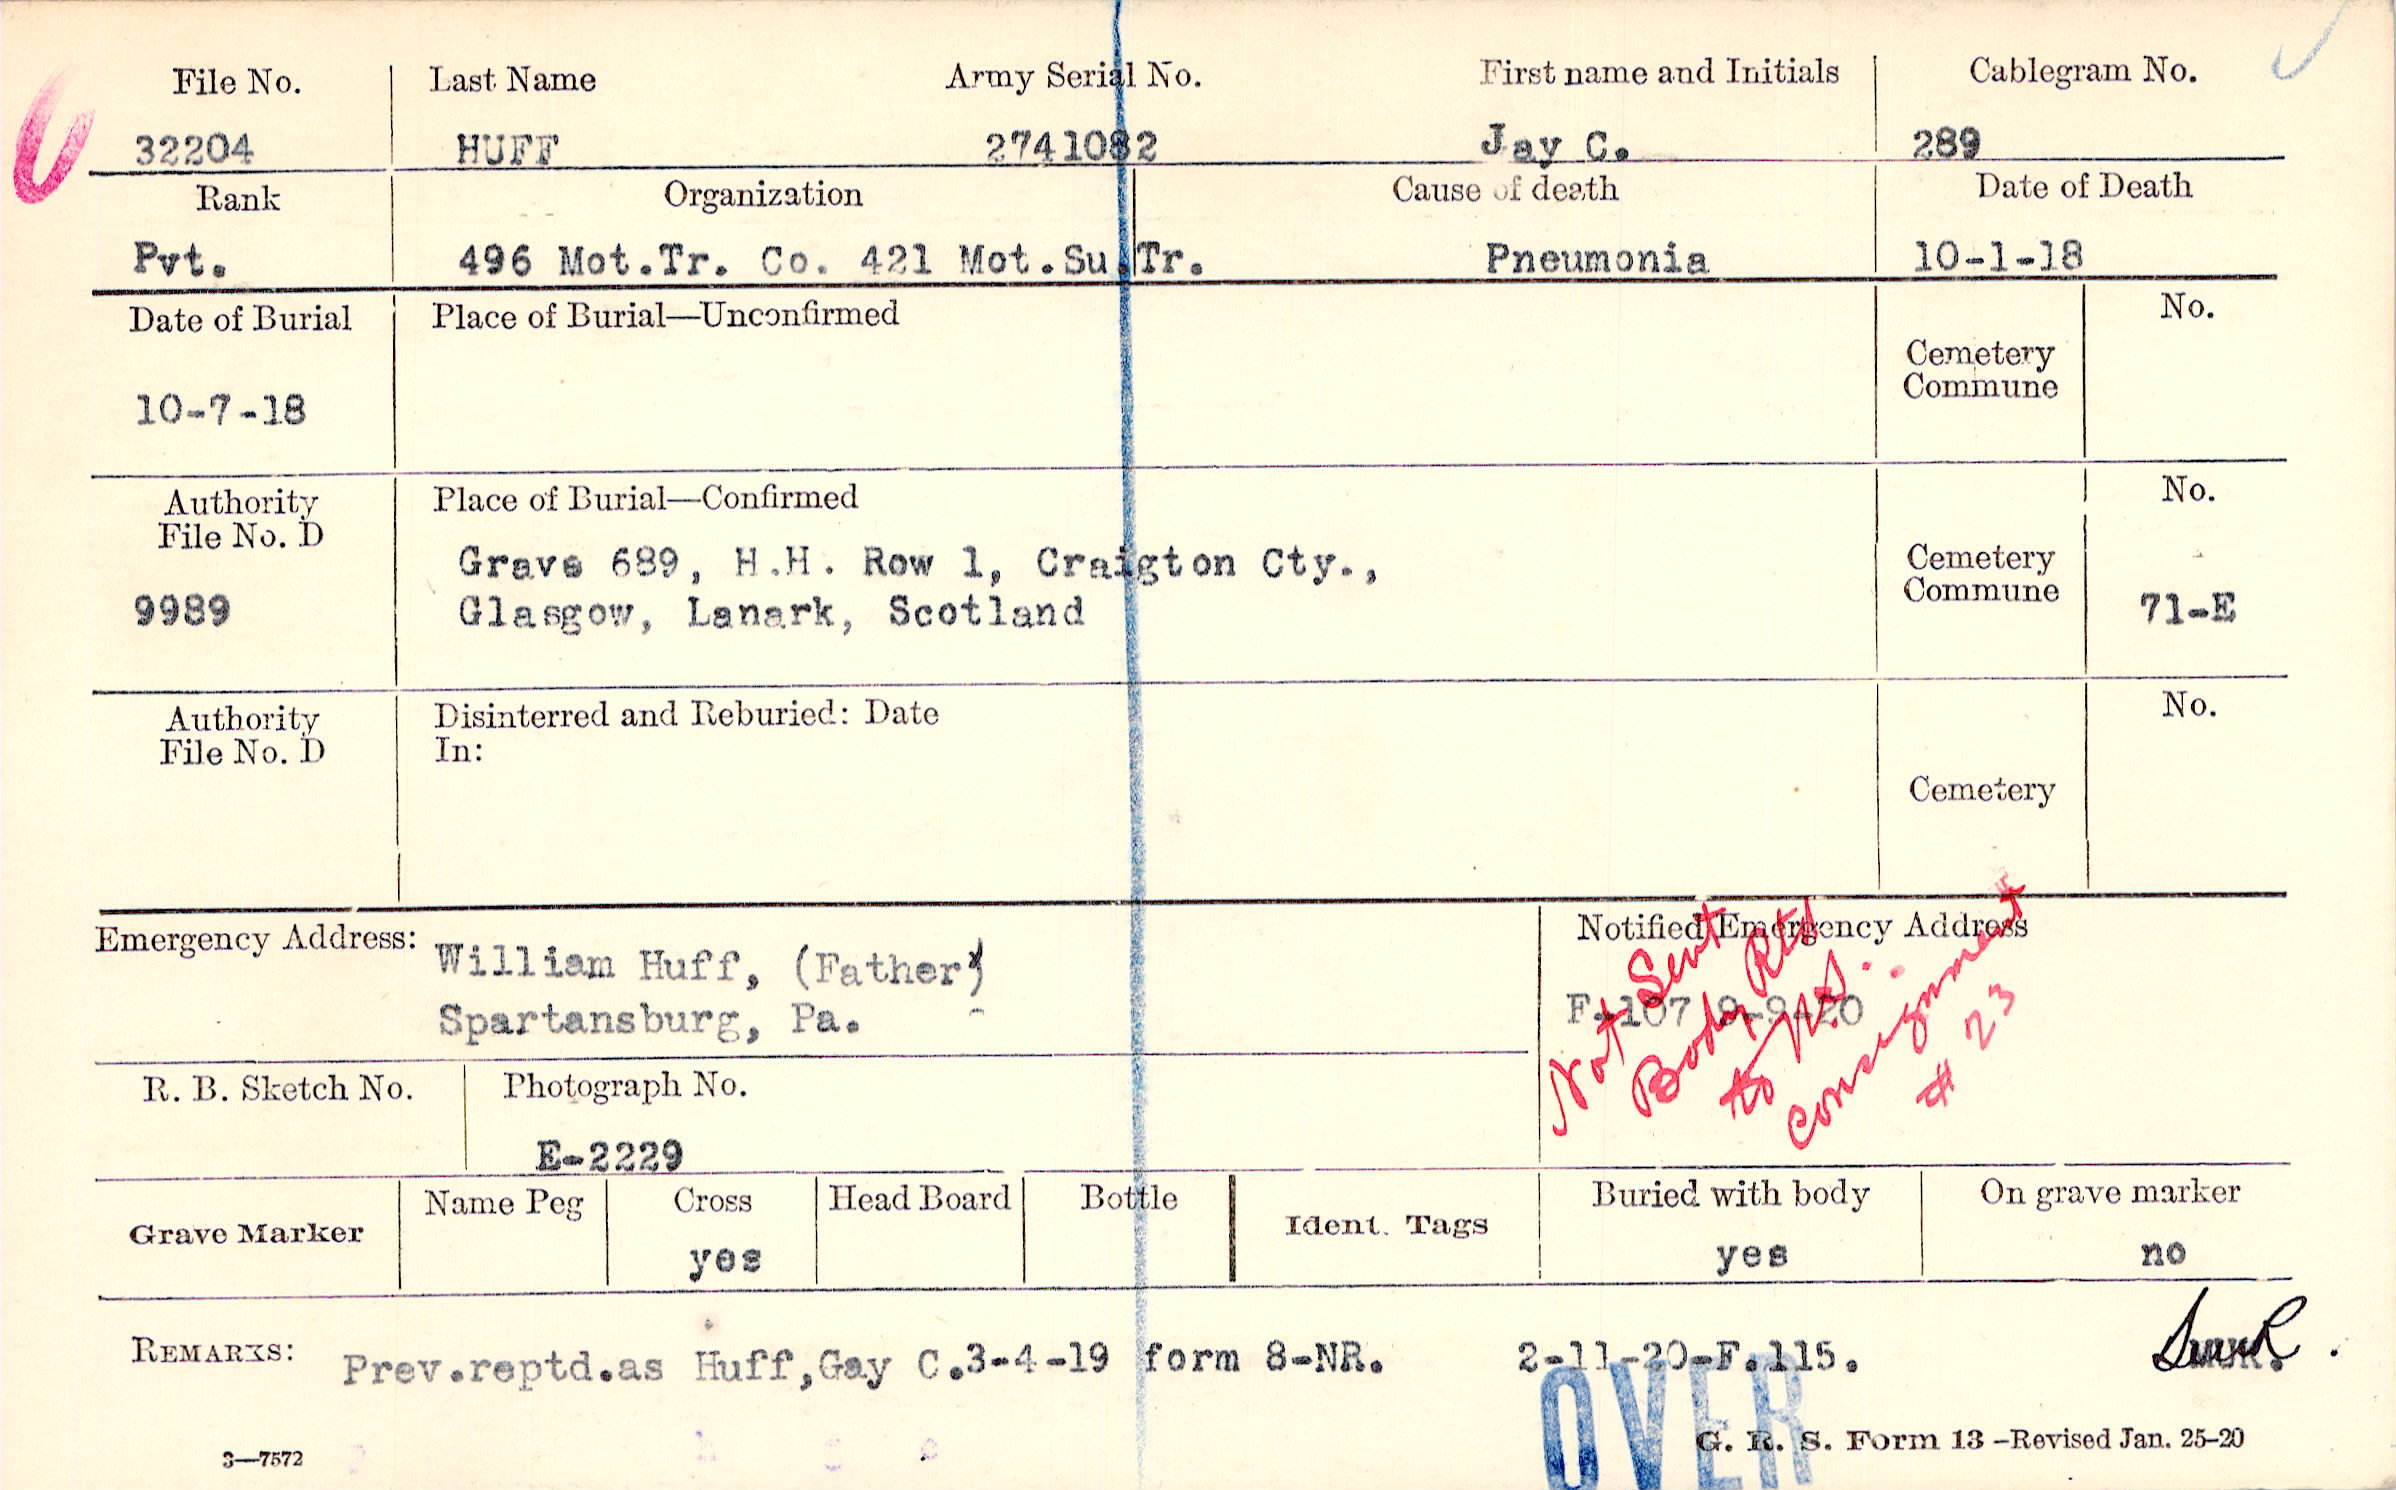 File No. Last Name Army Serial No. First name and Initials Cablegram No.
32204 HUFF 2741082 Jay C. 289
Rank Organization Cause of death Date of Death
Pvt. 496 Mot.Tr. Co. 421 Mot.Su.Tr. Pneumonia 10-1-18
Date of Burial Place of Burial—Unconfirmed No.
Cemetery
Commune
10-7-18
Authority Place of Burial—Confirmed No.
File No. D
Grave 689, H.H. Row 1, Craigton Cty., Cemetery
Commune
9989 Glasgow, Lanark, Scotland 71-E
Authority Disinterred and Reburied: Date No.
File No. D In:
Cemetery
Emergency Address: William Huff, (Father)
Spartansburg, Pa.
Notified Emergency Address
F-107 9-9-20
Not Sent
Body Rtd
to U.S.
consignment
# 23
R. B. Sketch No. Photograph No.
E-2229
Grave Marker Name Peg Cross Head Board Bottle Ident. Tags Buried with body On grave marker
yes yes no
REMARKS: Prev.reptd.as Huff,Gay C.3-4-19 form 8-NR. 2-11-20-F.115.
OVER
3—7572 G. R. S. Form 13 -Revised Jan. 25-20